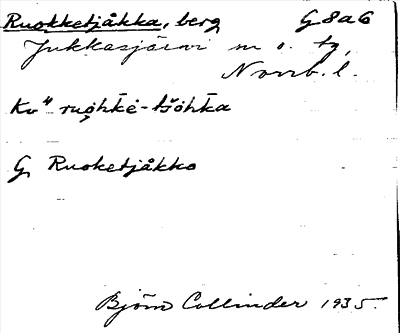 Ruokketjåkka, berg G 8a6
Jukkasjärvi m o. tg,
Norrb. l.
Kv" ruo̭hḱė-tšŏhka
G Ruoketjåkko
Björn Collinder 1935.